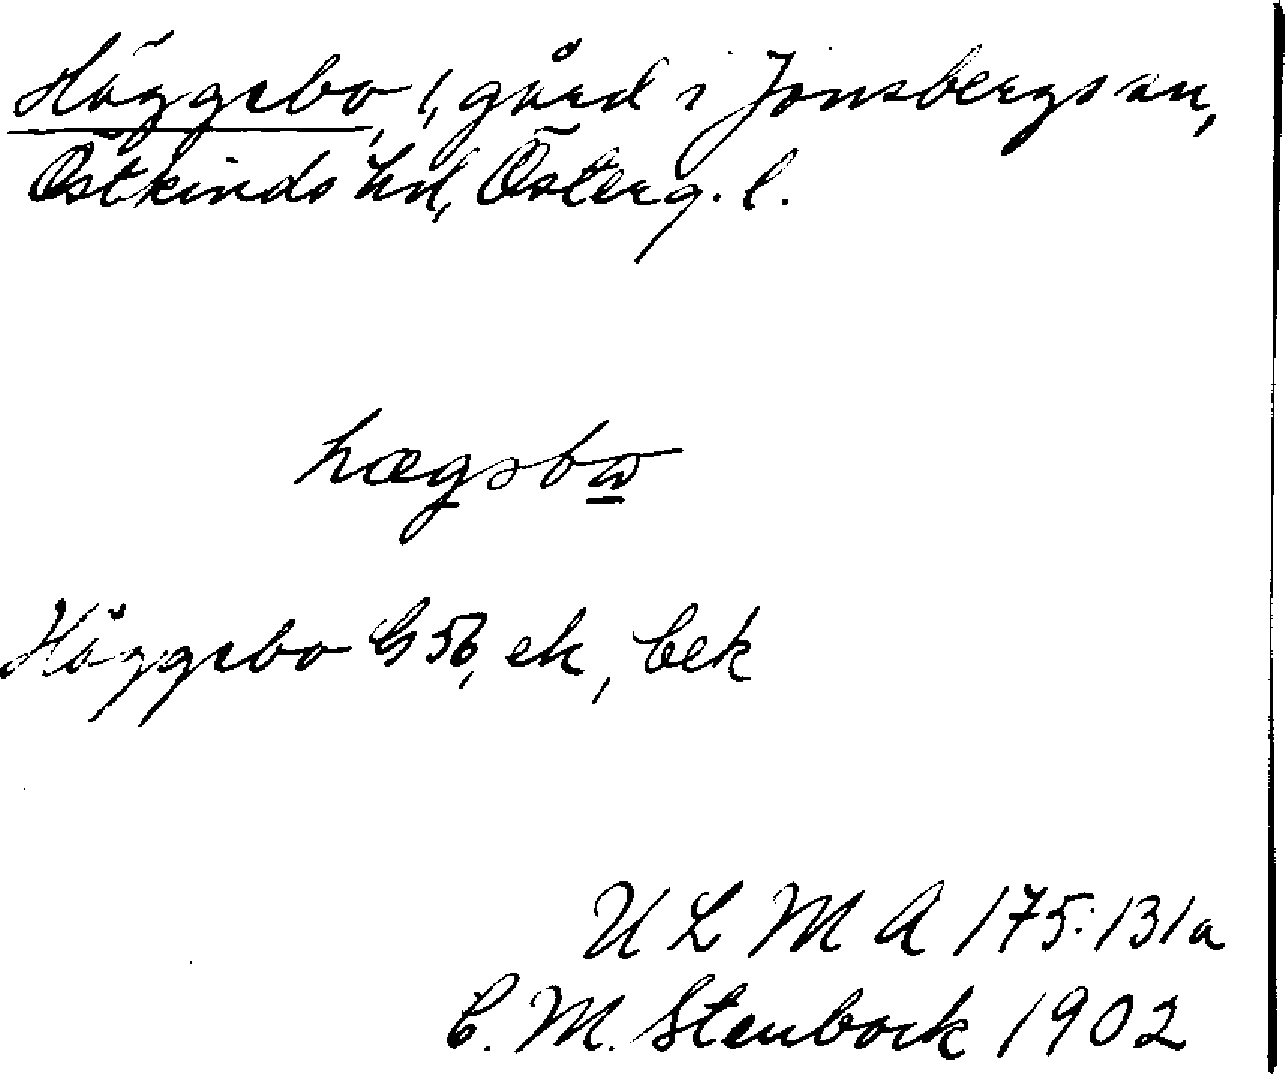 Häggebo, 1, gård i Jonsbergs sn,
Östkinds hd, Österg. l.
hægsbω
Häggebo G 56, ek, bek
U L M A 175:131a
C. M. Stenbock 1902